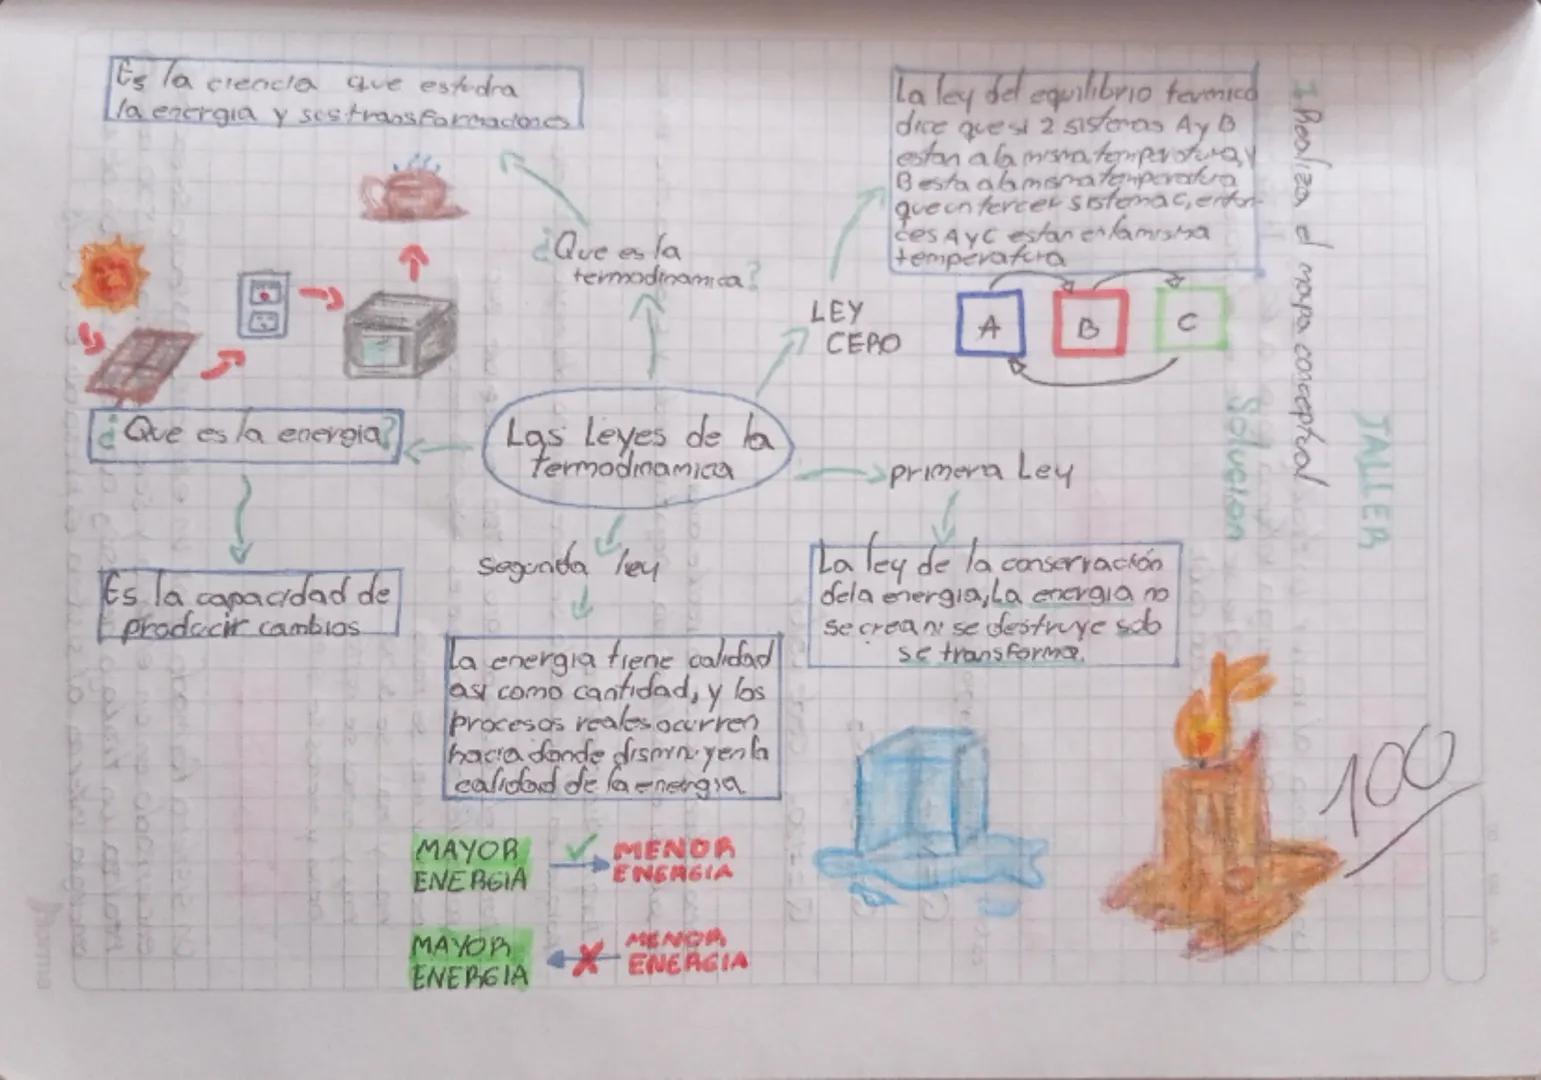 TALLER
1 Realiza el mapa conceptual
Solucion
Es la ciencia que estudia
la energia y sus transformaciones
¿Que es la
termodinamica?
La ley del equilibrio termico
dice que si 2 sistemas A y B
estan a la misma temperatura y
B esta a la misma temperatura
que un tercer sistema C, enton-
ces A y C estan en la misma
temperatura
LEY
CERO
A B C
¿Que es la energia?
Las Leyes de la
termodinamica
primera Ley
segunda ley
Es la capacidad de
producir cambios
La ley de la conservación
de la energia, La energia no
se crea ni se destruye solo
se transforma.
La energia tiene calidad
asi como cantidad, y los
procesos reales ocurren
hacia donde disminuyen la
calidad de la energia
100
MAYOR
ENERGIA
MENOR
ENERGIA
MAYOR
ENERGIA
X
MENOR
ENERGIA